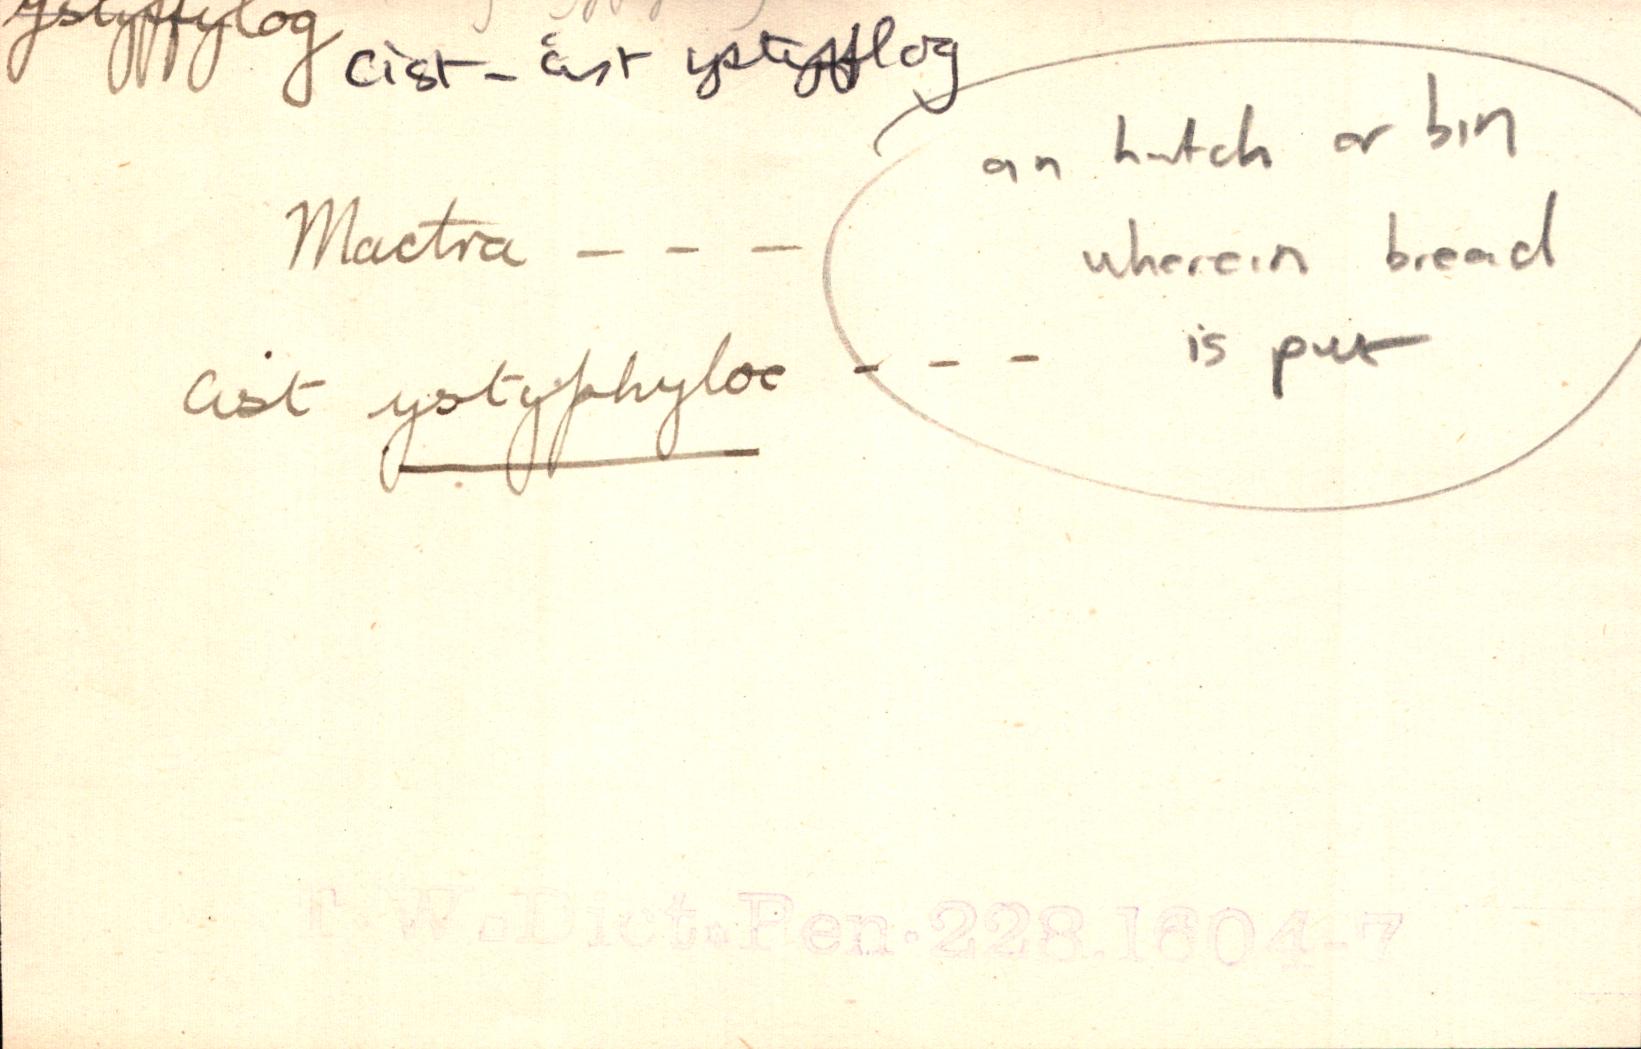 ystyffylog
cist - cist ystyfflog
an hutch or bin
Mactra - - -
wherein bread
cist ystyphyloc - - -
is put
T.W.Dict.Pen.228.1604-7